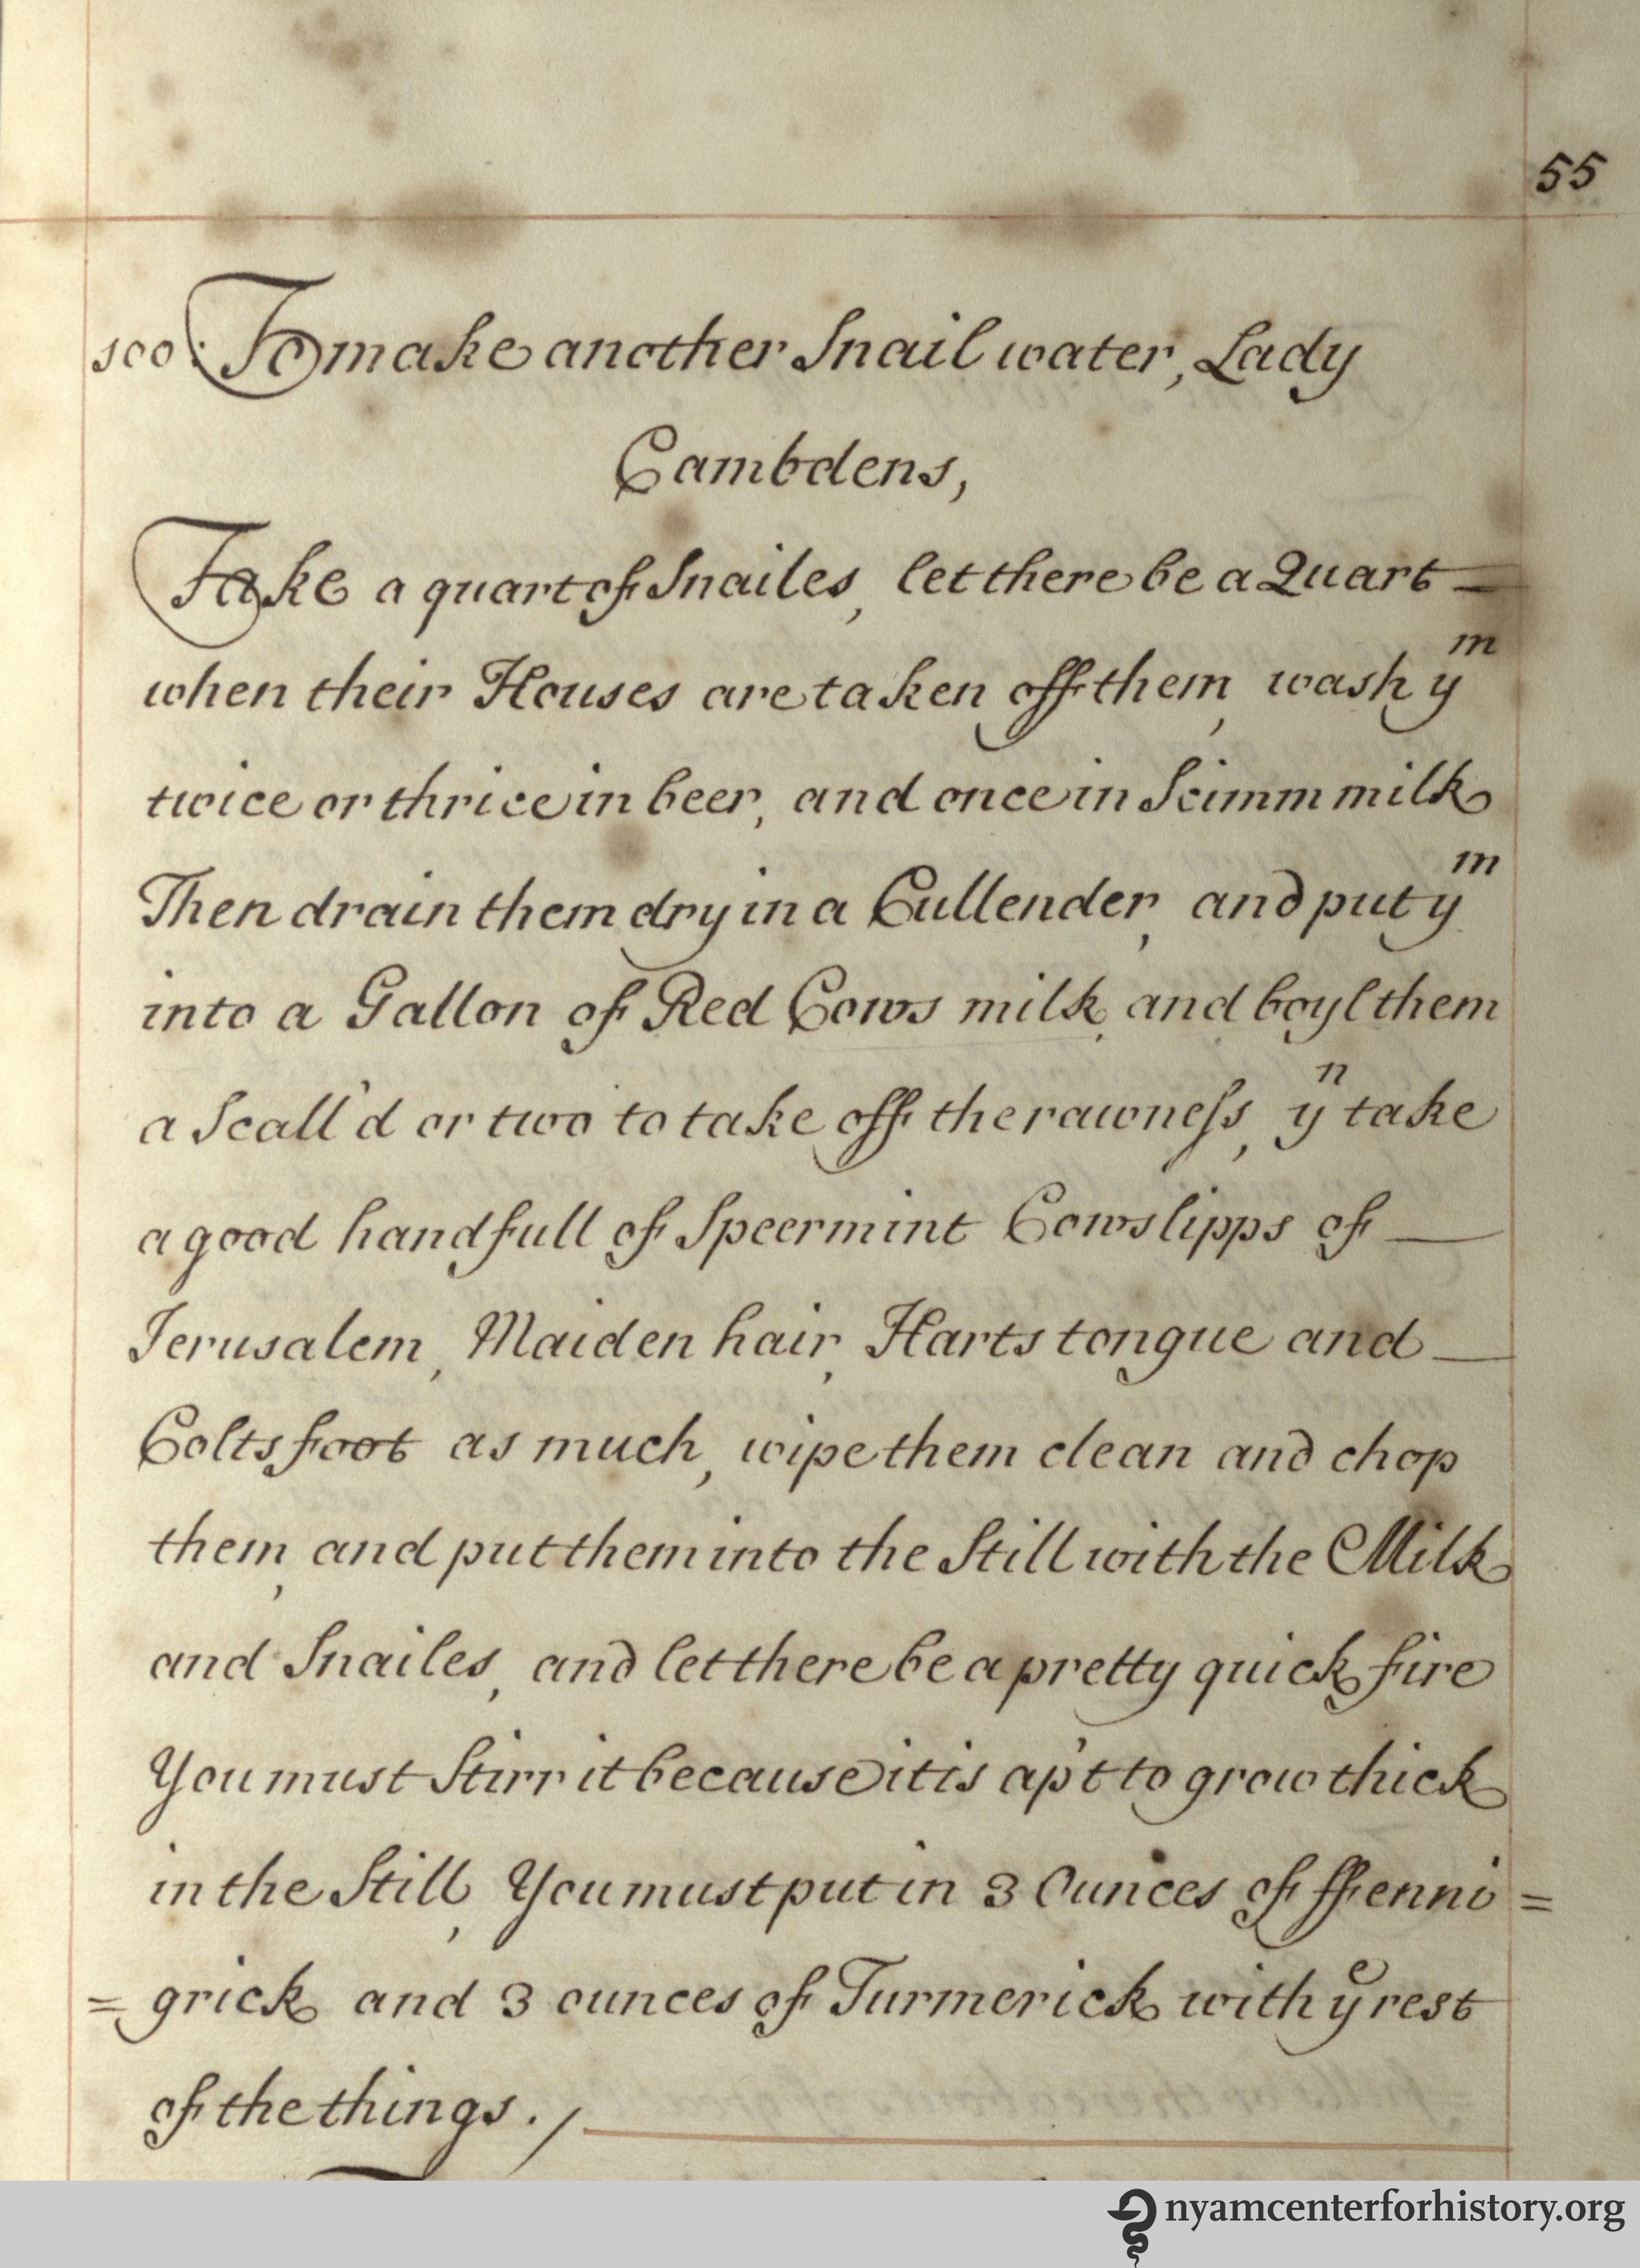 55
100: To make another Snail water, Lady
Cambdens,
Take a quart of Snailes, let there be a Quart —
when their Houses are taken off them, wash yᵐ
twice or thrice in beer, and once in Scimm milk
Then drain them dry in a Cullender, and put yᵐ
into a Gallon of Red Cows milk, and boyl them
a Scall'd or two to take off the rawneſs, yⁿ take
a good handfull of Speermint Cowslipps of —
Jerusalem, Maiden hair, Harts tongue and —
Coltsfoot as much, wipe them clean and chop
them, and put them into the Still with the Milk
and Snailes, and let there be a pretty quick fire
You must Stirr it because it is ap't to grow thick
in the Still, You must put in 3 Ounces of ffenni=
=grick and 3 ounces of Turmerick with yᵉ rest
of the things./
nyamcenterforhistory.org